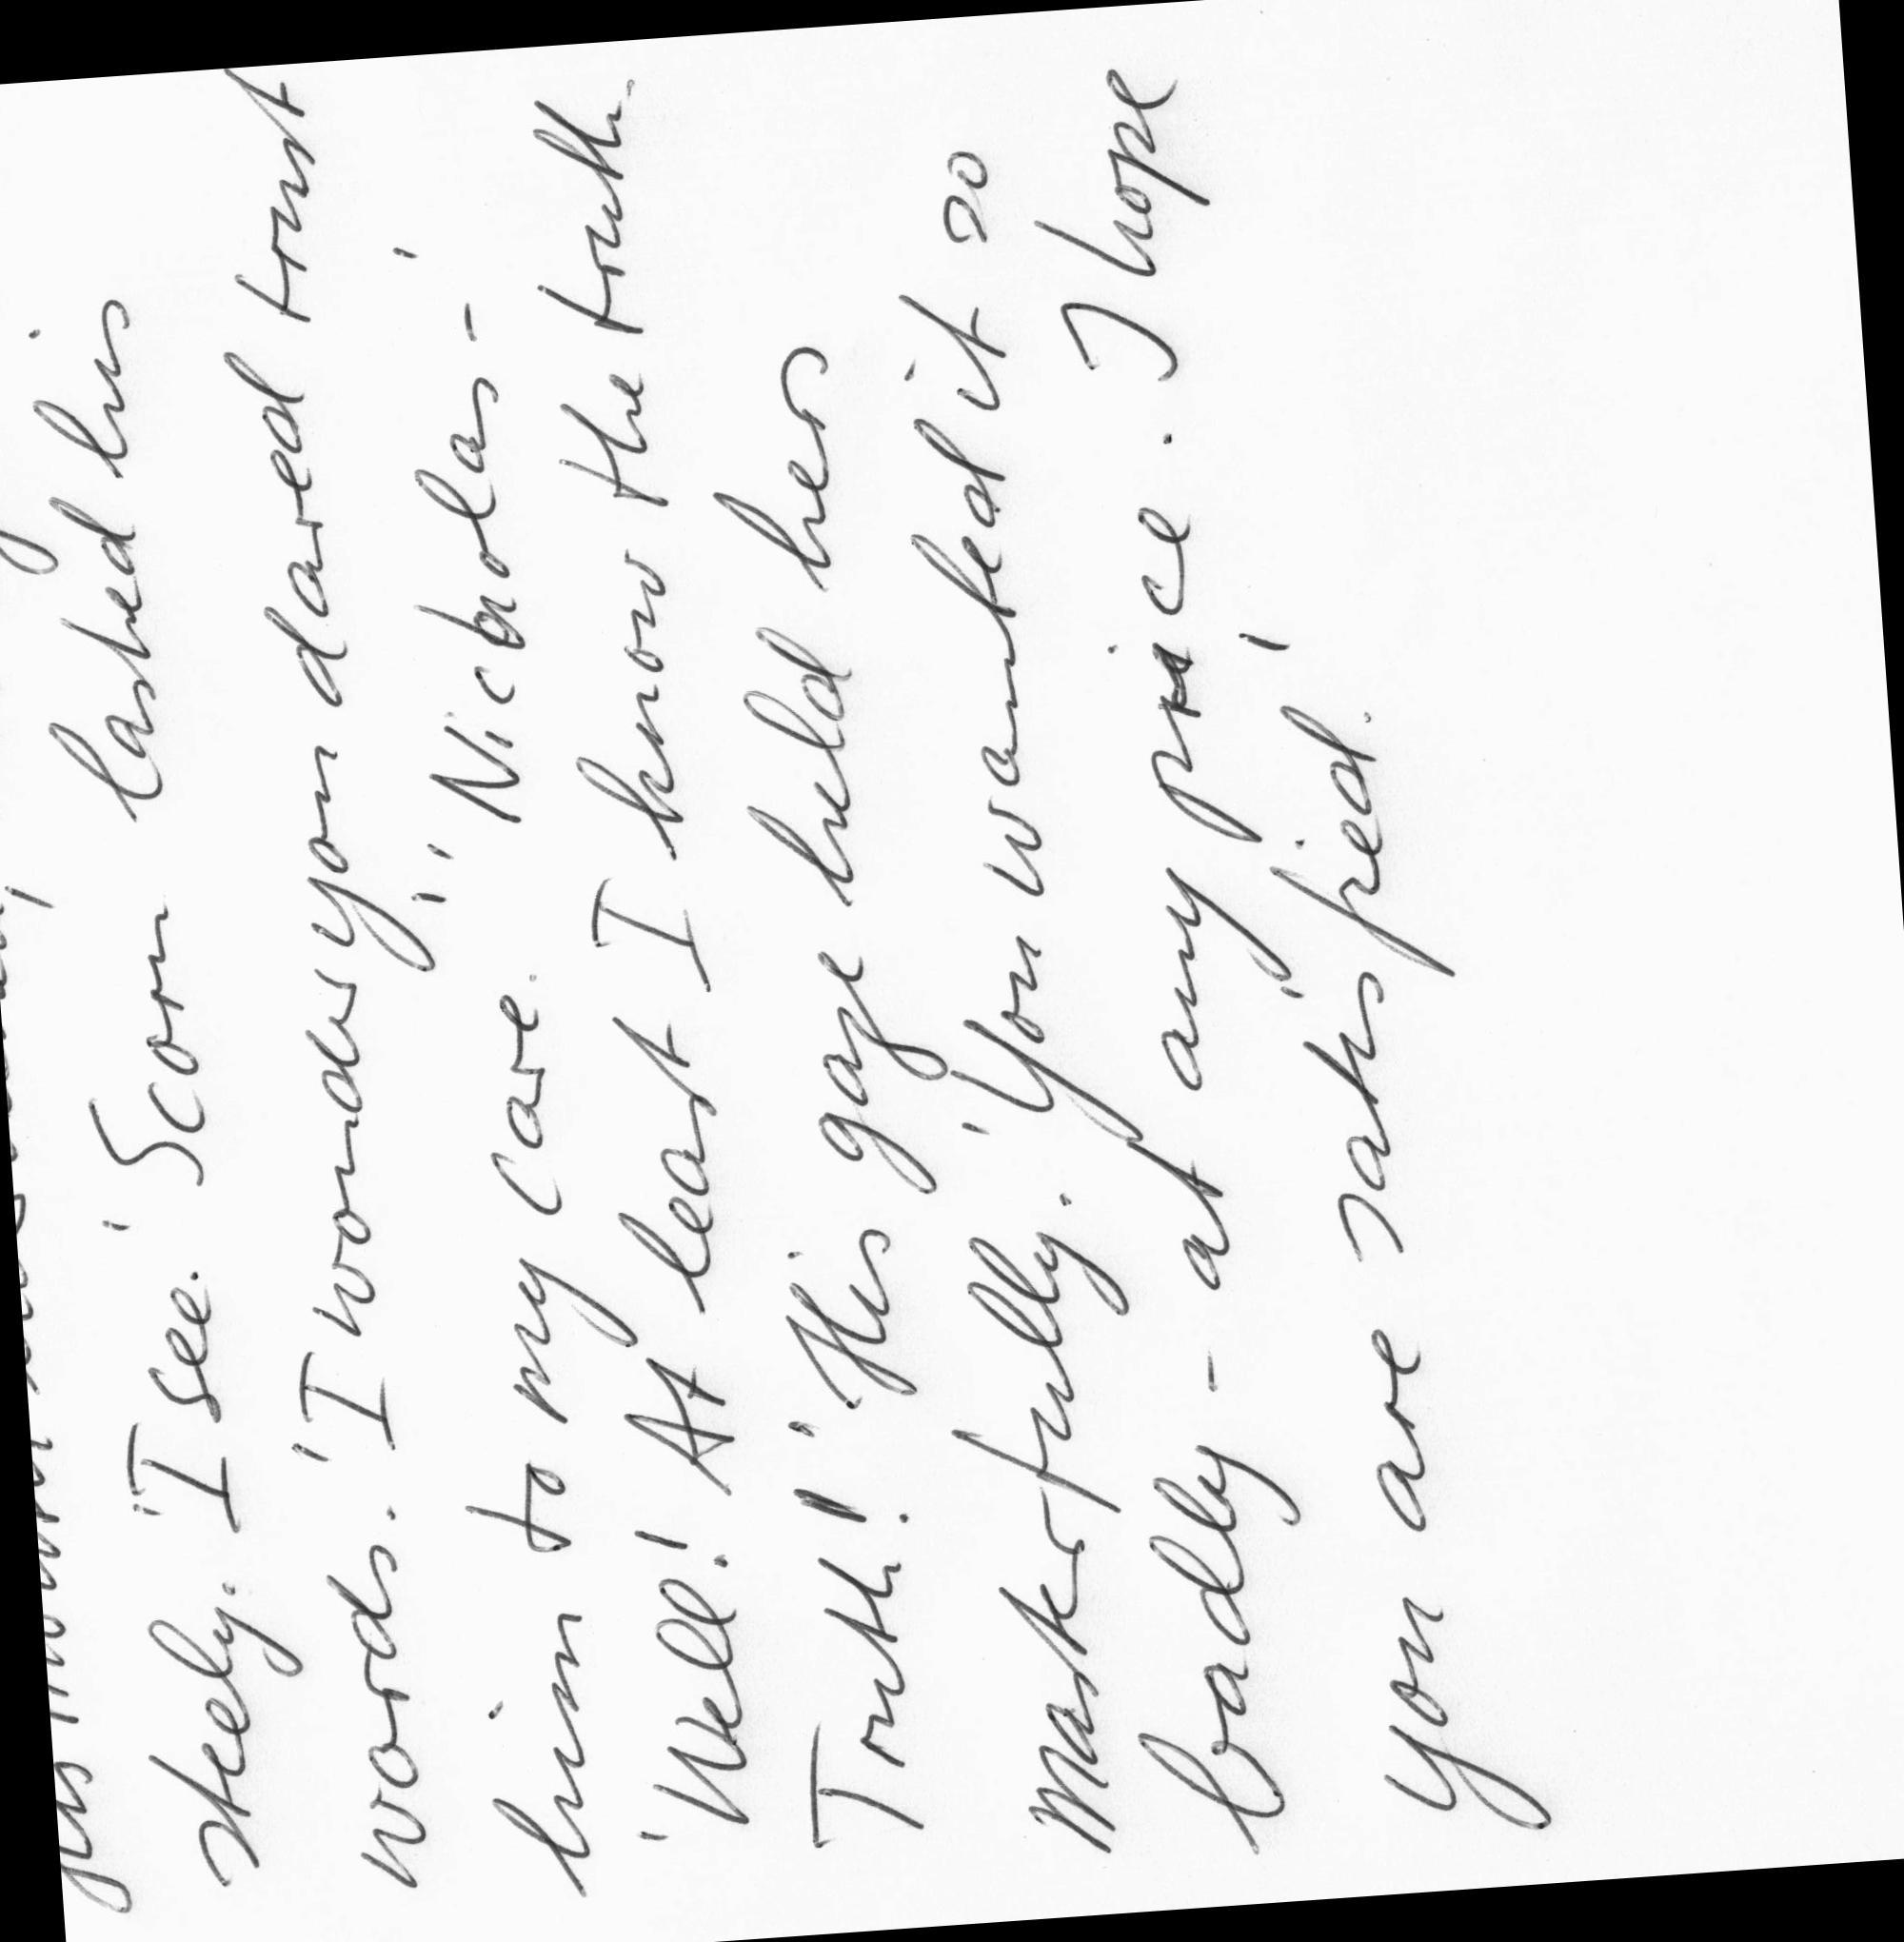 steely. "I see." Scorn lashed his
words. "I wonder you dared trust
him to my care." "Nicholas - "
"Well! At least I know the truth.
Truth!" His gaze held hers
masterfully. "You wanted it so
badly - at any price. I hope
you are satisfied."